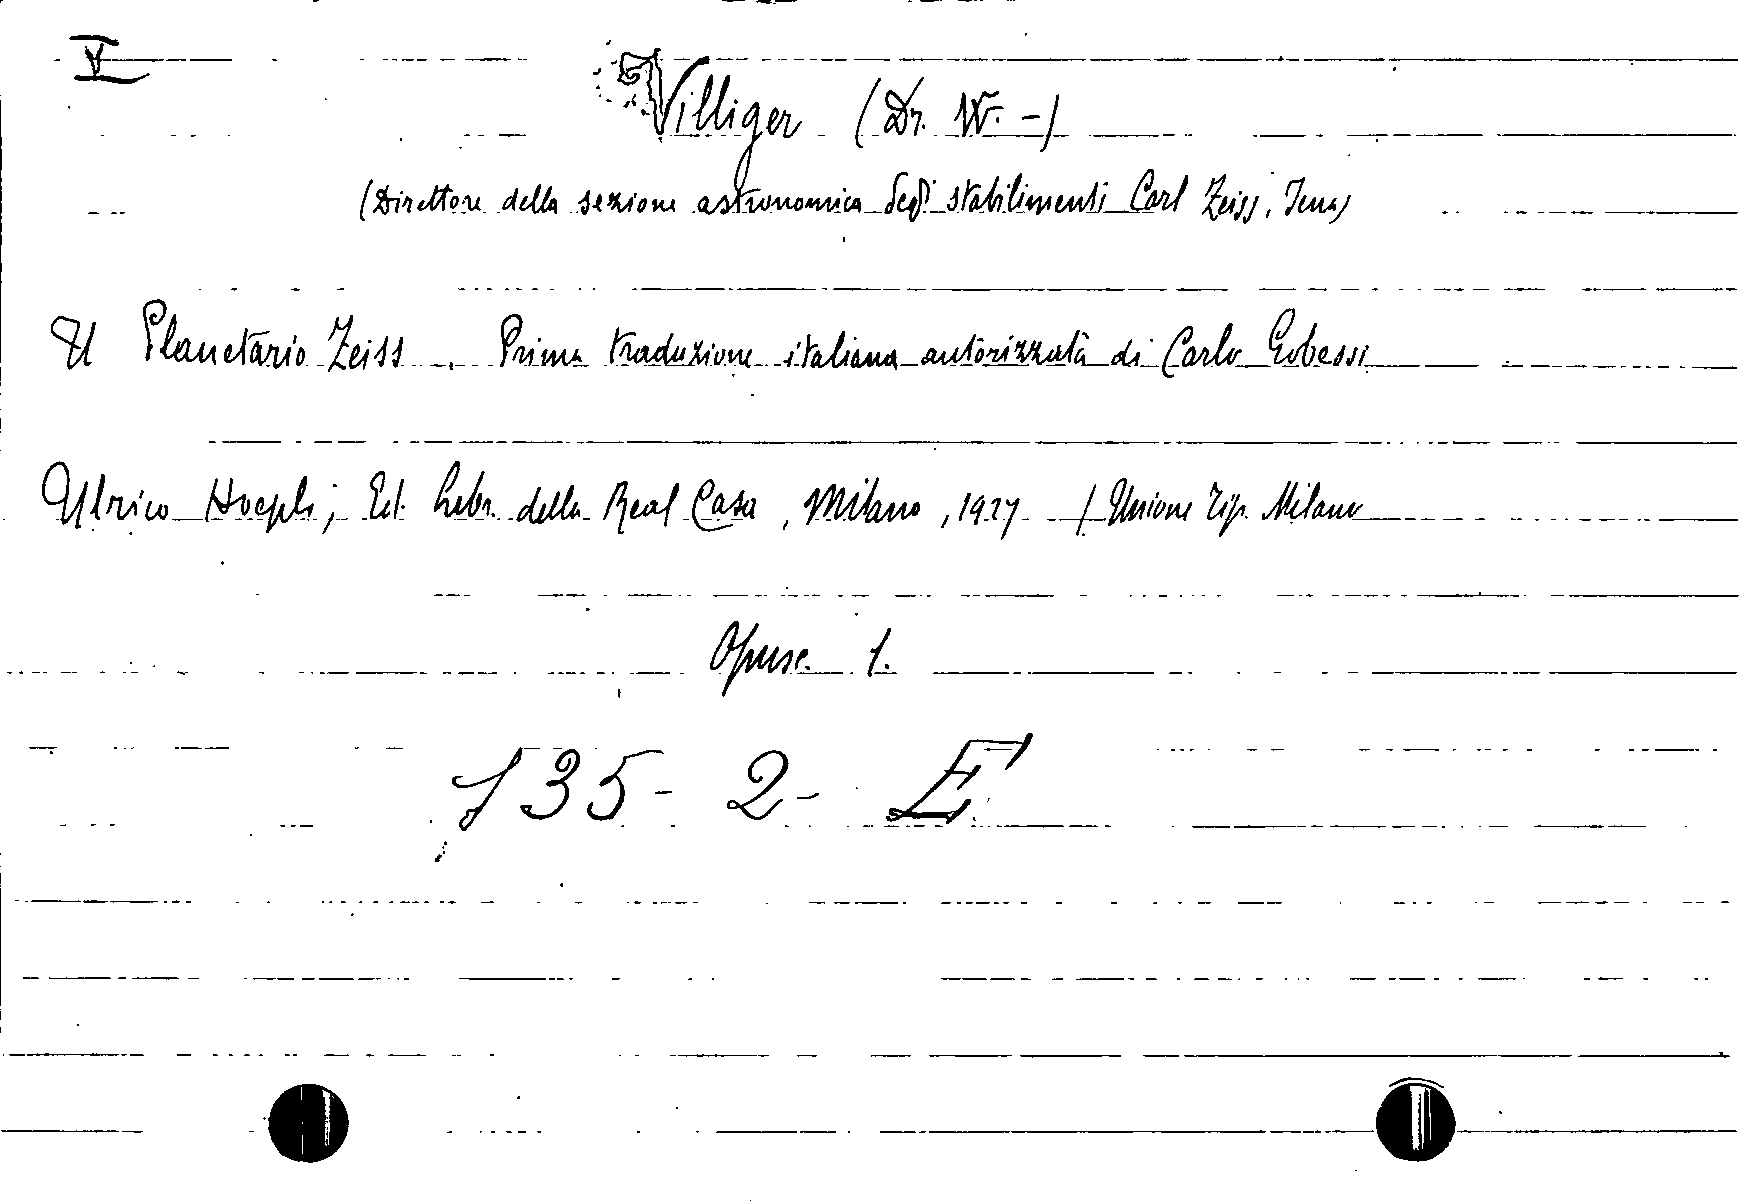 V
Villiger (Dr. W. -)
(Direttore della sezione astronomica degli stabilimenti Carl Zeiss, Jena)
Il Planetario Zeiss. Prima traduzione italiana autorizzata di Carlo
Ulrico Hoepli, Ed. Libr. della Real Casa, Milano, 1927 / Unione Tip. Milano
Opusc. 1.
135- 2- E